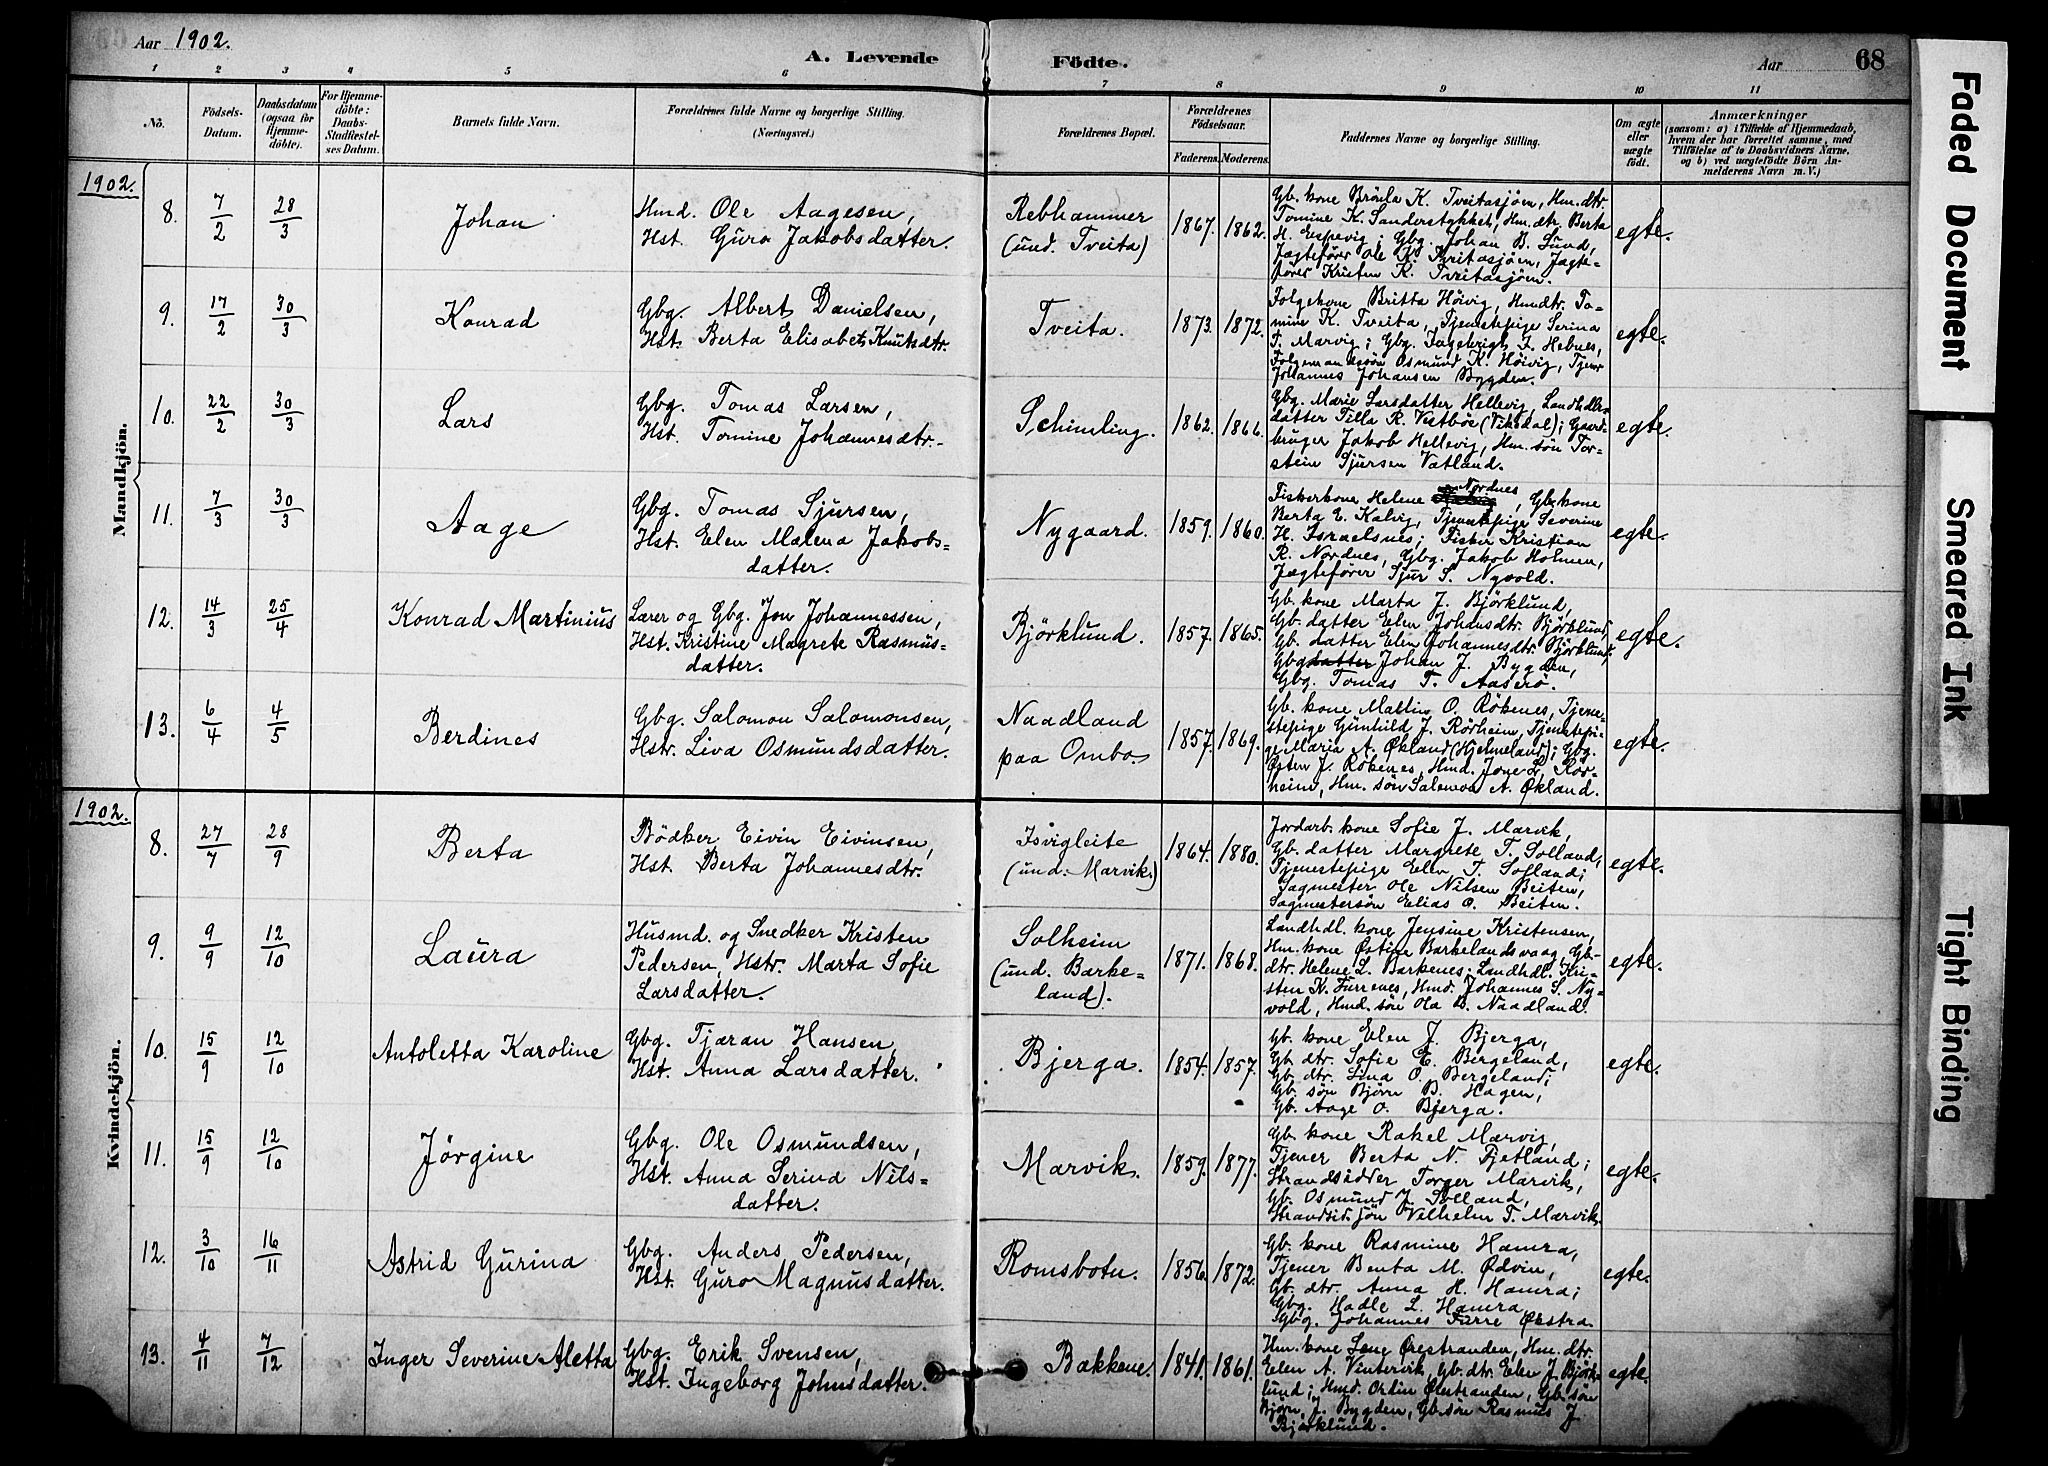 Aar 1902.
A. Levende Födte.
Aar
68
1 2 3 4 5 6 7 8 9 10 11
No.
Födsels-
Datum.
Daabsdatum
(ogsaa for
Hjemme-
döbte).
For Hjemme-
döbte:
Daabs-
Stadfæstel-
ses Datum.
Barnets fulde Navn.
Forældrenes fulde Navne og borgerlige Stilling.
(Næringsvei.)
Forældrenes Bopæl.
Forældrenes
Födselsaar.
Faderens. Moderens.
Faddernes Navne og borgerlige Stilling.
Om ægte
eller
uægte
födt.
Anmærkninger
(saasom: a) i Tilfælde af Hjemmedaab,
hvem der har forrettet samme, med
Tilföielse af to Daabsvidners Navne,
og b) ved uægtefödte Börn An-
melderens Navn m. V.)
Mandkjön.
1902.
8. 7/2 28/3 Johan
Hmd. Ole Aagesen,
Hst. Guro Jakobsdatter.
Rebhammer
(und. Tveita)
1867. 1862.
Gb. kone Brönla K. Tveitasjöen, Hm. dtr.
Tomine K. Sanderstykket, Hm. dtr. Berta
H. Espevig, Gbg. Johan B. Lund,
Jægtefører Ole K. Tveitasjöen, Jægte-
fører Kristen K. Tveitasjöen.
egte.
9. 17/2 30/3 Konrad
Gbg. Albert Danielsen,
Hst. Berta Elisabet Knutsdtr.
Tveita.
1873. 1872.
Folgekone Britta Höivig, Hmdtr. To-
mine K. Tveita, Tjenestepige Serina
T. Marvig; Gbg. Ingebrigt J. Hebnes,
Folgemandssön Osmund K. Höivig, Tjener
Johannes Johansen Bygden.
egte.
10. 22/2 30/3 Lars
Gbg. Tomas Larsen,
Hst. Tomine Johannesdtr.
Schimling.
1862. 1866.
Gbg. Marie Larsdatter Hellevig, Landhdlr.
datter Tilla R. Vestböe (Vikedal); Gaard-
bruger Jakob Hellevig, Hm. sön Tor-
stein Sjursen Vatland.
egte.
11. 7/3 30/3 Aage
Gbg. Tomas Sjursen,
Hst. Elen Malena Jakobs=
datter.
Nygaard.
1859. 1860.
Nordnes
Fiskerkone Helene , Gb. kone
Berta E. Kalvig, Tjenestepige Severine
H. Israelsnes; Fisker Kristian
R. Nordnes, Gbg. Jakob Holmen,
Jægtefører Sjur S. Nyvold.
egte.
12. 14/3 25/4 Konrad Martinius
Lærer og Gbg. Jon Johannessen,
Hst. Kristine Magrete Rasmus=
datter.
Björklund.
1857. 1865.
Gb. kone Marta J. Björklund,
Gb. datter Elen Johnsdtr. Björklund,
Gb. datter Elen Johannesdtr. Björklund;
Gbg datter Johan J. Bygden,
Gbg. Tomas T. Aaserö.
egte.
13. 6/4 4/5 Berdines
Gbg. Salomon Salomonsen,
Hstr. Liva Osmundsdatter.
Naadland
paa Ombo.
1857. 1869.
Gb. kone Mattis O. Rökenes, Tjene-
stepige Gunhild J. Rörheim, Tjenestepi-
ge Maria A. Økland (Hjelmeland); Gbg.
Østen J. Rökenes, Hmd. Jone L. Rör-
heim, Hm. sön Salomon A. Økland.
egte.
Kvindekjön.
1902.
8. 27/7 28/9 Berta
Bödker Eivin Eivinsen,
Hst. Berta Johannesdtr.
Isvigleite
(und. Marvik.)
1864. 1880.
Jordarb. kone Sofie J. Marvik,
Gb. datter Margrete T. Solland,
Tjenestepige Elen T. Solland;
Sagmester Ole Nilsen Beiten,
Sagmestersön Elias O. Beiten.
egte.
9. 9/9 12/10 Laura
Husmd. og Snedker Kristen
Pedersen, Hstr. Marta Sofie
Larsdatter.
Solheim
(und. Barke=
land).
1871. 1868.
Landhdl. kone Jensine Kristensen,
Hm. kone Østine Barkelandsvaag, Gb-
dtr. Helene L. Barkenes; Landhdl. Kri-
sten K. Furrenes, Hmd. Johannes S. Ny-
vold, Hmd. sön Ola B. Naadland.
egte.
10. 15/9 12/10 Antoletta Karoline
Gbg. Tjæran Hansen,
Hst. Anna Larsdatter.
Bjerga.
1854. 1857.
Gb. kone Elen J. Bjerga,
Gb. dtr. Sofie E. Bergeland,
Gb. dtr. Lina O. Bergeland;
Gb. sön Björn B. Hagen,
Gb. Aage O. Bjerga.
egte.
11. 15/9 12/10 Jörgine
Gbg. Ole Osmundsen,
Hst. Anna Serina Nils=
datter.
Marvik.
1859. 1877.
Gb. kone Rakel Marvig,
Tjener Berta N. Fjetland;
Strandsidder Torger Marvik,
Gb. Osmund J. Solland,
Strandsid. sön Vilhelm T. Marvik.
egte.
12. 3/10 16/11 Astrid Gurina
Gbg. Anders Pedersen,
Hst. Guro Magnusdatter.
Romsbotn.
1856. 1872.
Gb. kone Rasmine Hamra,
Tjener Berita M. Ødvin,
Gb. dtr. Anna H. Hamra;
Gbg. Hadle L. Hamra,
Gbg. Johannes Furre Økstra.
egte.
13. 4/11 7/12 Inger Severine Aletta
Gbg. Erik Svensen,
Hst. Ingeborg Johnsdatter.
Bakkene.
1841. 1861.
Hm. kone Lene Ørestranden, Hm. dtr.
Elen A. Vintervik, Gb. dtr. Elen J. Björk-
lund; Hmd. Orlin Ølestranden, Gb. sön
Björn J. Bygden, Gb. sön Rasmus J
Björklund.
egte.
Faded Document
Smeared Ink
Tight Binding